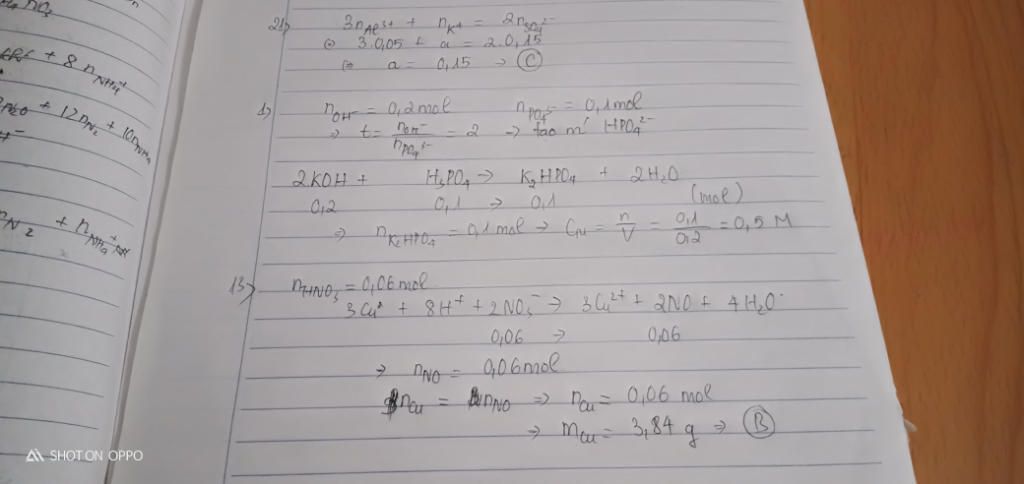 n NO₃
+ 8 n NH₄⁺
+ 12 n N₂ + 10 n NH₄
n N₂ + n NH₄⁺
21) 3n Al³⁺ + n K⁺ = 2n SO₄²⁻
(=) 3.0,05 + a = 2.0,15
(=) a = 0,15 → C
1) n OH⁻ = 0,2 mol n PO₄³⁻ = 0,1 mol
→ t = n OH⁻ / n PO₄³⁻ = 2 → tạo m' HPO₄²⁻
2KOH + H₃PO₄ → K₂HPO₄ + 2H₂O
0,2 0,1 → 0,1 (mol)
⇒ n K₂HPO₄ = 0,1 mol → C_M = n/V = 0,1/0,2 = 0,5 M
13) n HNO₃ = 0,06 mol
3Cu + 8H⁺ + 2NO₃⁻ → 3Cu²⁺ + 2NO + 4H₂O
0,06 → 0,06
→ n NO = 0,06 mol
n Cu = n NO ⇒ n Cu = 0,06 mol
⇒ m Cu = 3,84 g ⇒ B
SHOT ON OPPO